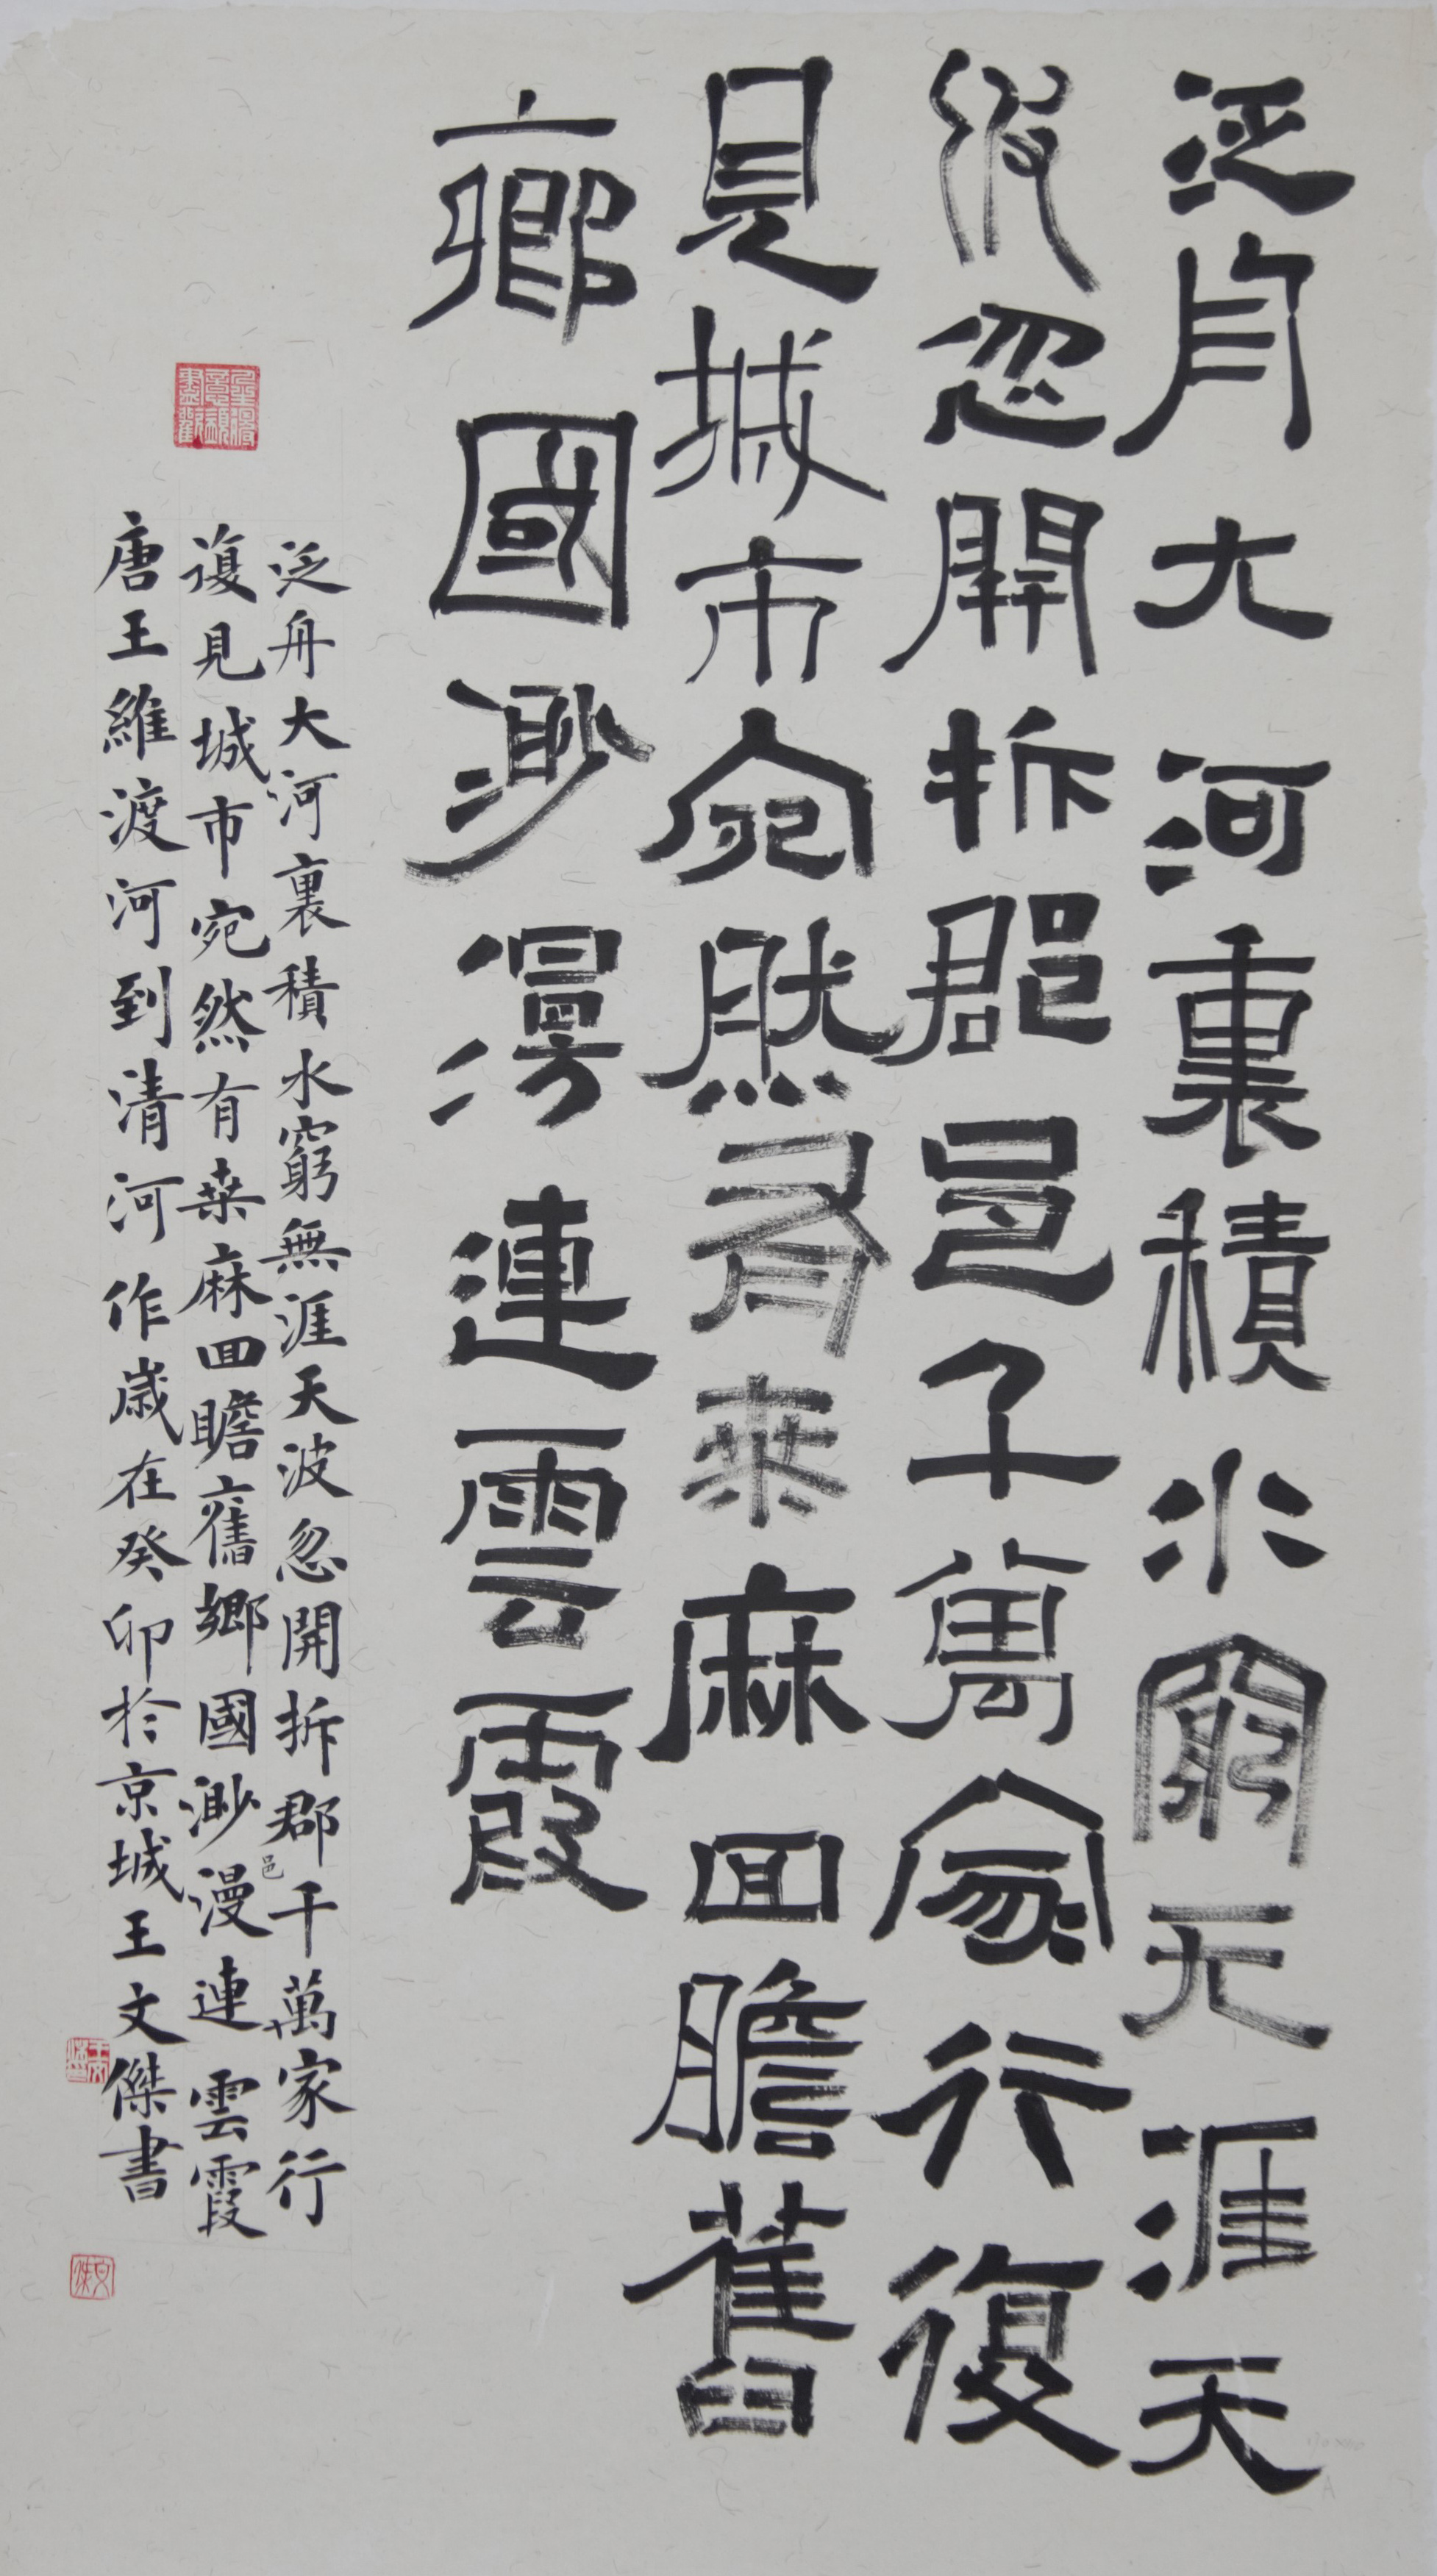 泛舟大河裏積水窮无涯天
波忽開拆郡邑千萬家行復
見城市宛然有桒麻回瞻舊
鄉國渺漫連雲霞
泛舟大河裏積水窮無涯天波忽開拆郡邑千萬家行
復見城市宛然有桒麻回瞻舊鄉國渺漫連雲霞
唐王維渡河到清河作歲在癸卯於京城王文傑書